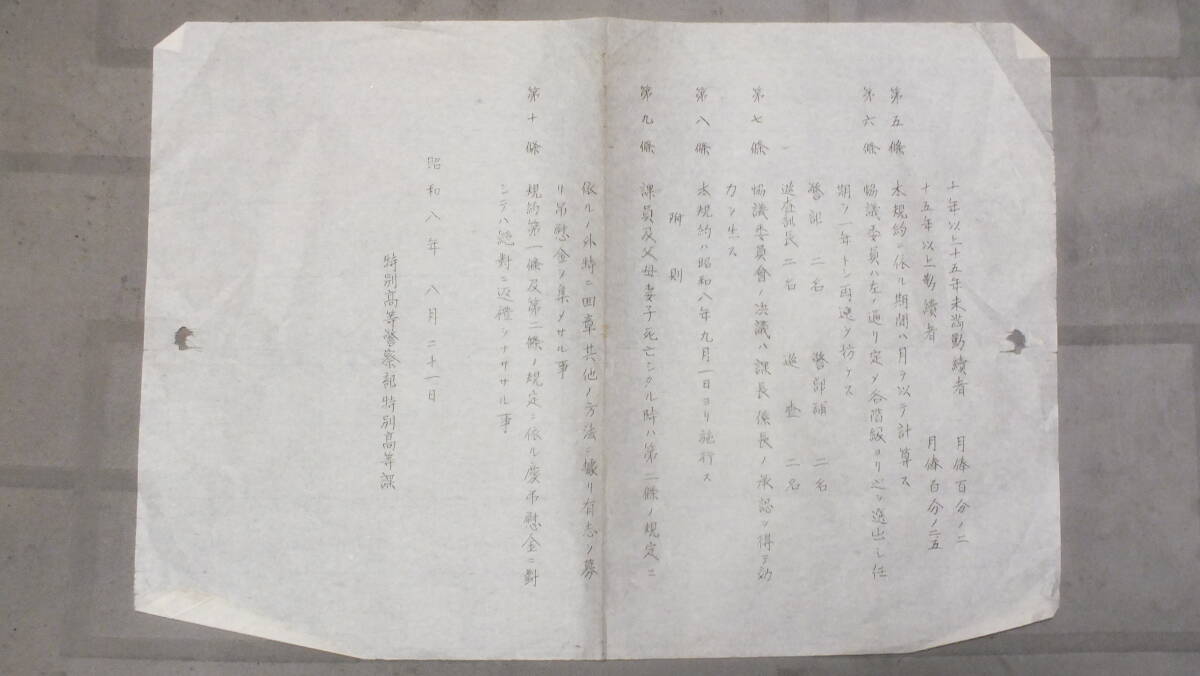 十年以上十五年未満勤續者　月俸百分ノ二
十五年以上勤續者　月俸百分ノ二五
第五條　本規約ニ依ル期間ハ月ヲ以テ計算ス
第六條　協議委員ハ左ノ通リ定メ各階級ヨリ之ヲ選出シ任
期ヲ一年トシ再選ヲ妨ケス
警部　二名　警部補　二名
巡査部長　二名　巡査　二名
第七條　協議委員會ノ決議ハ課長係長ノ承認ヲ得テ効
力ヲ生ス
第八條　本規約ハ昭和八年九月一日ヨリ施行ス
附則
第九條　課員及父母妻子死亡シタル時ハ第二條ノ規定ニ
依ルノ外時ニ回章其他ノ方法ニ據リ有志ノ募
リ吊慰金ヲ集メサル事
第十條　規約第一條及第二條ノ規定ニ依ル慶弔慰金ニ對
シテハ絶對ニ返禮シナササル事
昭和八年八月二十一日
特別高等警察部特別高等課